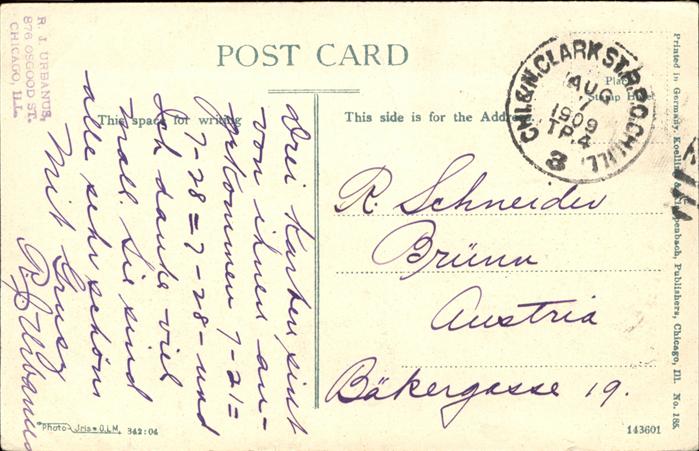 POST CARD
R. J. URBANUS,
876 OSGOOD ST.
CHICAGO, ILL.
This space for writing
This side is for the Address
Place
Stamp Here
CHI. & N. CLARK ST. R.P.O. CHI. ILL.
AUG
1909
TP. 4
3
Drei Karten sint
von ihnen an-
gekommen 7-21=
7-28=7-28- und
Ich danke viel
mall. Sie sind
alle sehr schöns
Mit Gruss
R J Urbanus
R. Schneider
Brünn
Austria
Bäkergasse 19.
Printed in Germany, Koelling & Klappenbach, Publishers, Chicago, Ill. No. 185.
Photo Jris D.L.M. 342:04
143601